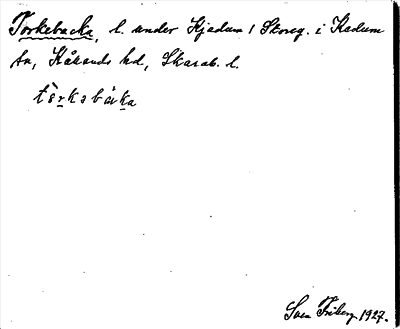 Torkebacka, l. under Kjadum 1 Storeg. i Kadum
sn, Kålands hd, Skarab. l.
tòrkəbàka
Sven Friberg 1927.